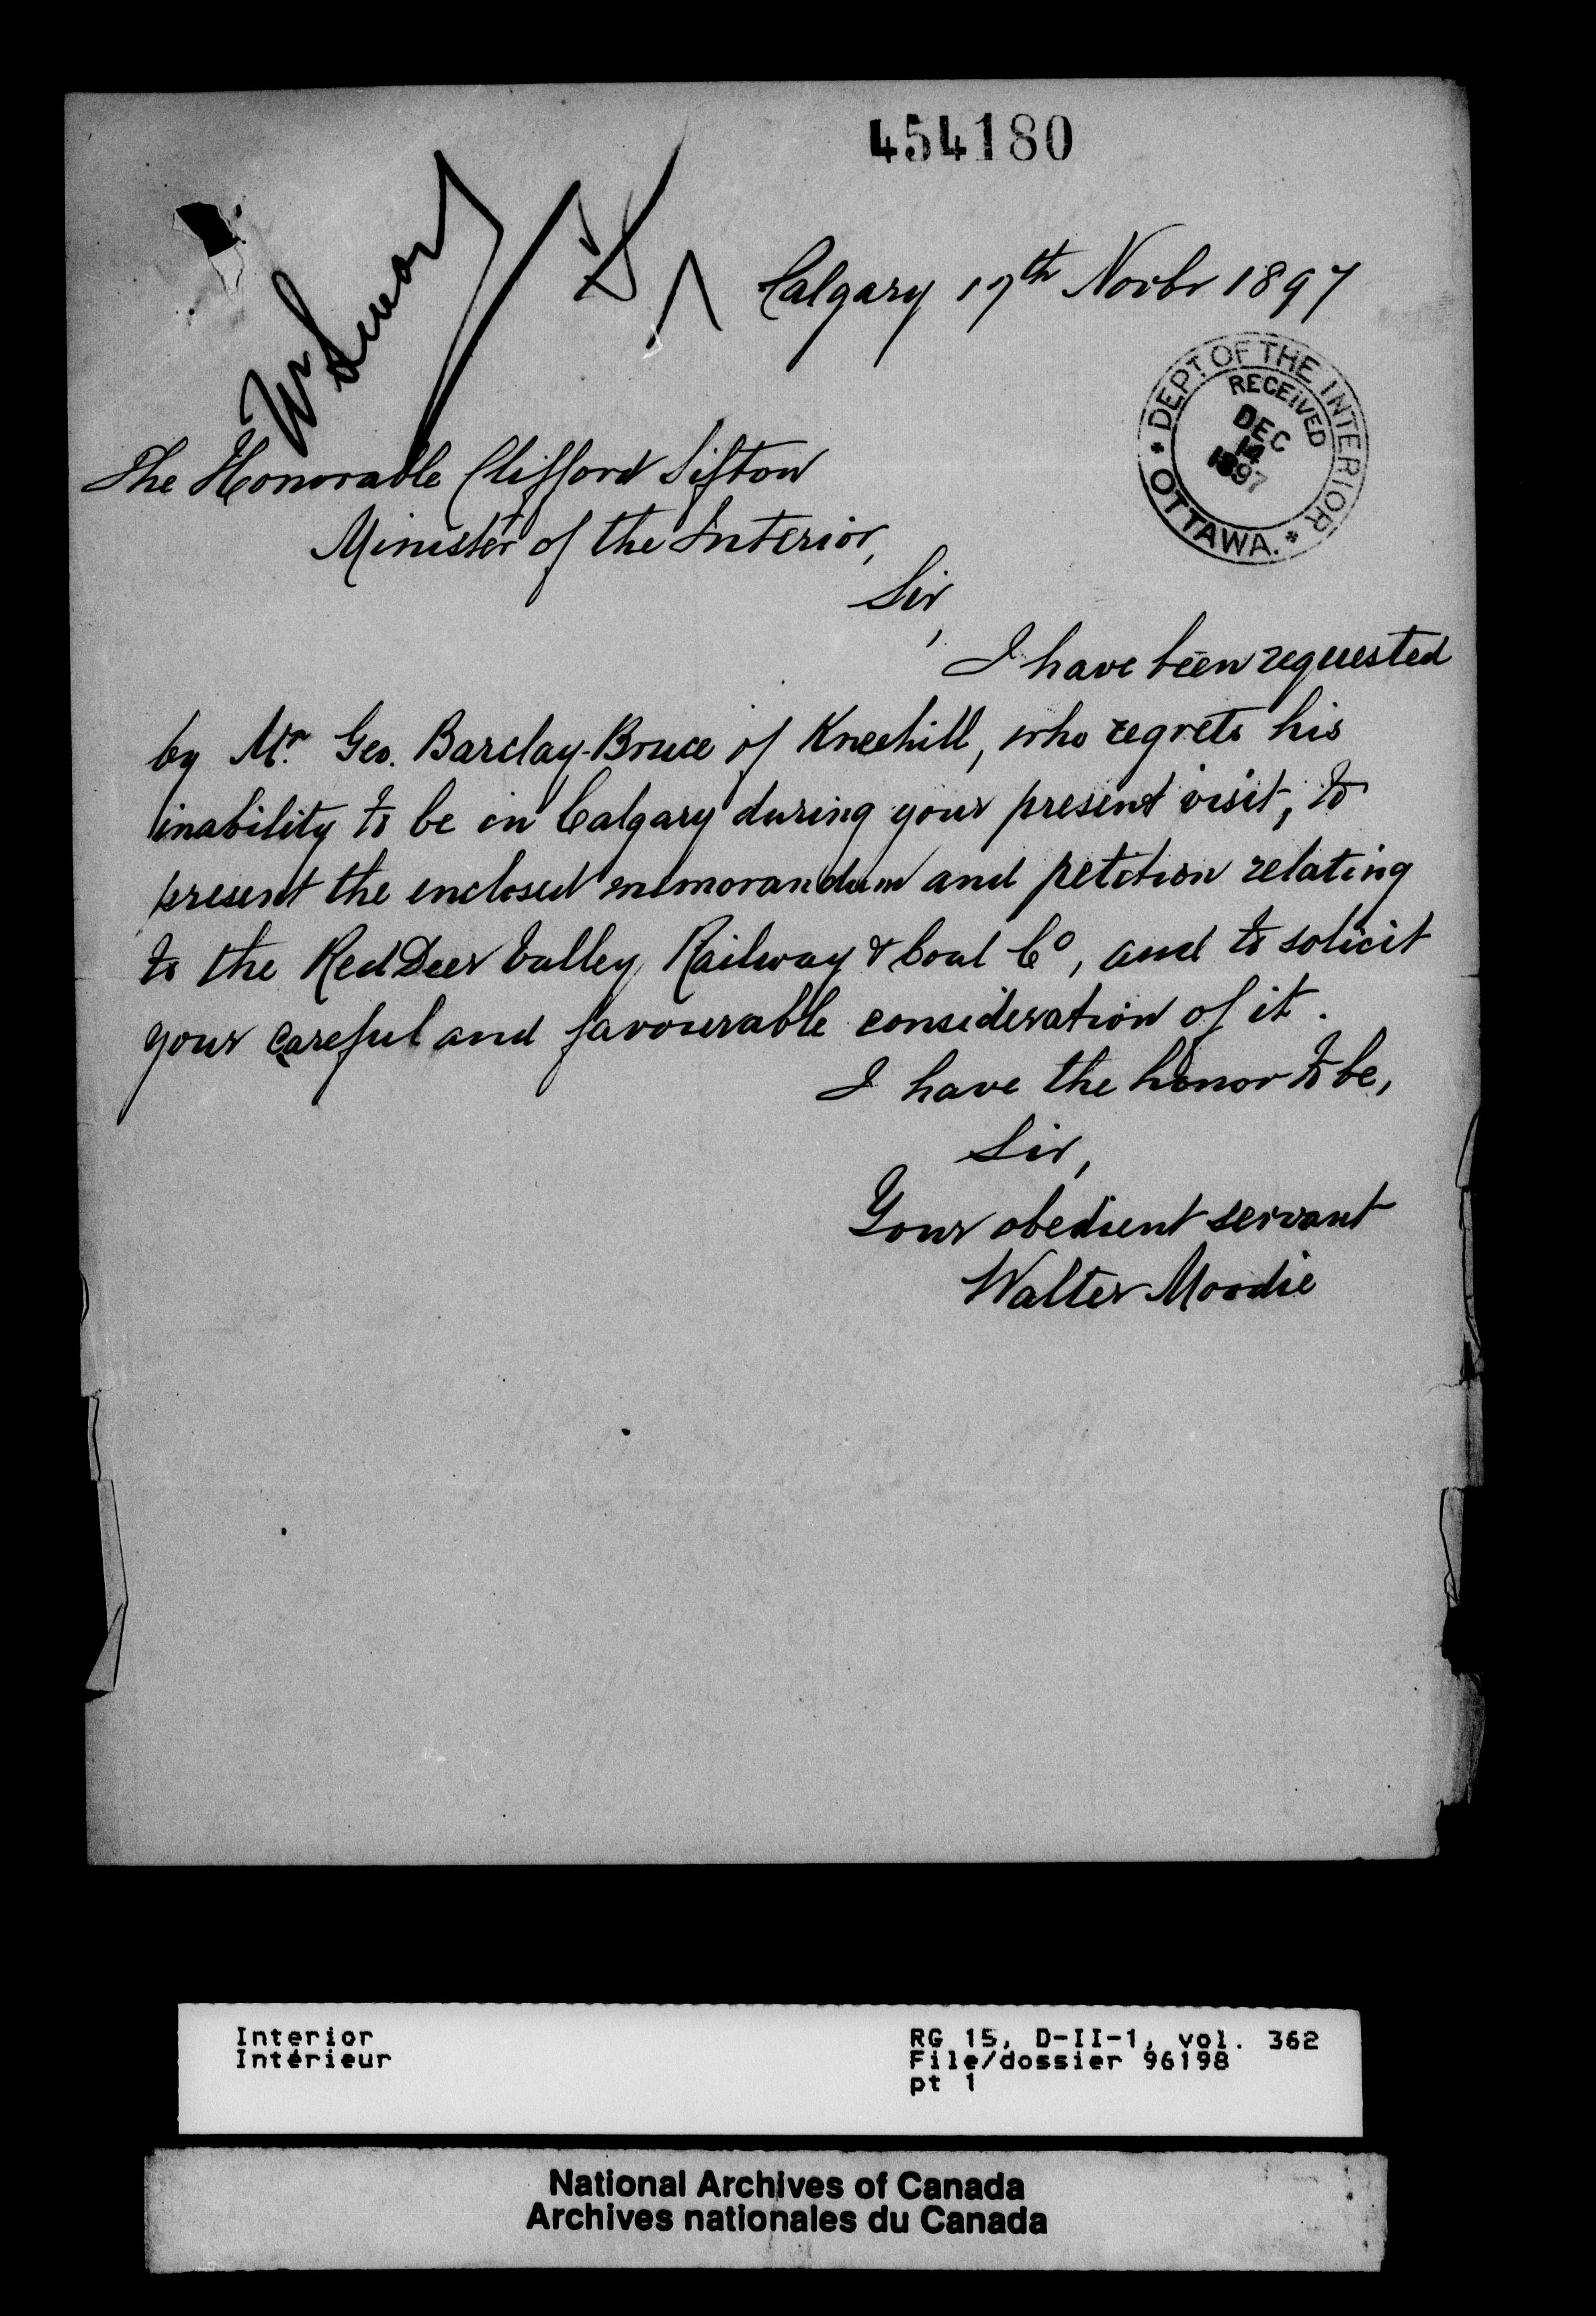 454180
Calgary 17th Novbr 1897
DEPT. OF THE INTERIOR
RECEIVED
DEC
14
1897
* OTTAWA. *
The Honorable Clifford Sifton
Minister of the Interior,
Sir,
I have been requested
by Mr. Geo. Barclay-Bruce of Kneehill, who regrets his
inability to be in Calgary during your present visit, to
present the enclosed memorandum and petition relating
to the Red Deer Valley Railway & Coal Co, and to solicit
your careful and favourable consideration of it.
I have the honor to be,
Sir,
Your obedient servant
Walter Moodie
Interior
Intérieur
RG 15, D-II-1, vol. 362
File/dossier 96198
pt 1
National Archives of Canada
Archives nationales du Canada